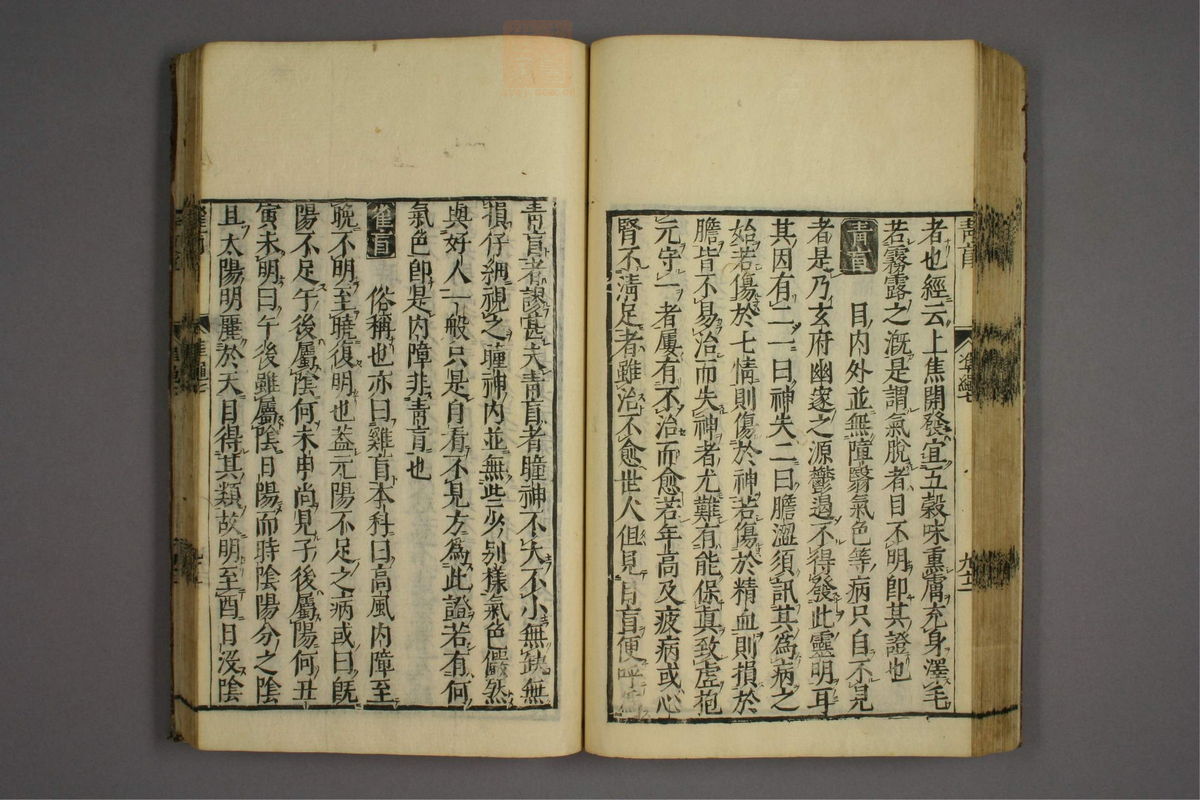 者也經云上焦開發宣五穀味熏膚充身澤毛
若霧露之漑是謂氣脫者目不明卽其證也
青盲　目內外並無障翳氣色等病只自不見
者是乃玄府幽邃之源鬱遏不得發此靈明耳
其因有二一曰神失二曰膽澀須訊其爲病之
始若傷於七情則傷於神若傷於精血則損於
膽皆不易治而失神者尤難有能保眞致虛抱
元守一者屢有不治而愈若年高及疲病或心
腎不淸足者雖治不愈世人但見目盲便呼爲
青盲者謬甚夫青盲者瞳神不大不小無缺無
損仔細視之瞳神內並無些少別樣氣色儼然
與好人一般只是自看不見方爲此證若有何
氣色卽是內障非青盲也
雀盲　俗稱也亦曰雞盲本科曰高風內障至
晚不明至曉復明也蓋元陽不足之病或曰旣
陽不足午後屬陰何未申尚見子後屬陽何丑
寅未明曰午後雖屬陰日陽而時陰陽分之陰
且太陽明麗於天目得其類故明至酉日沒陰